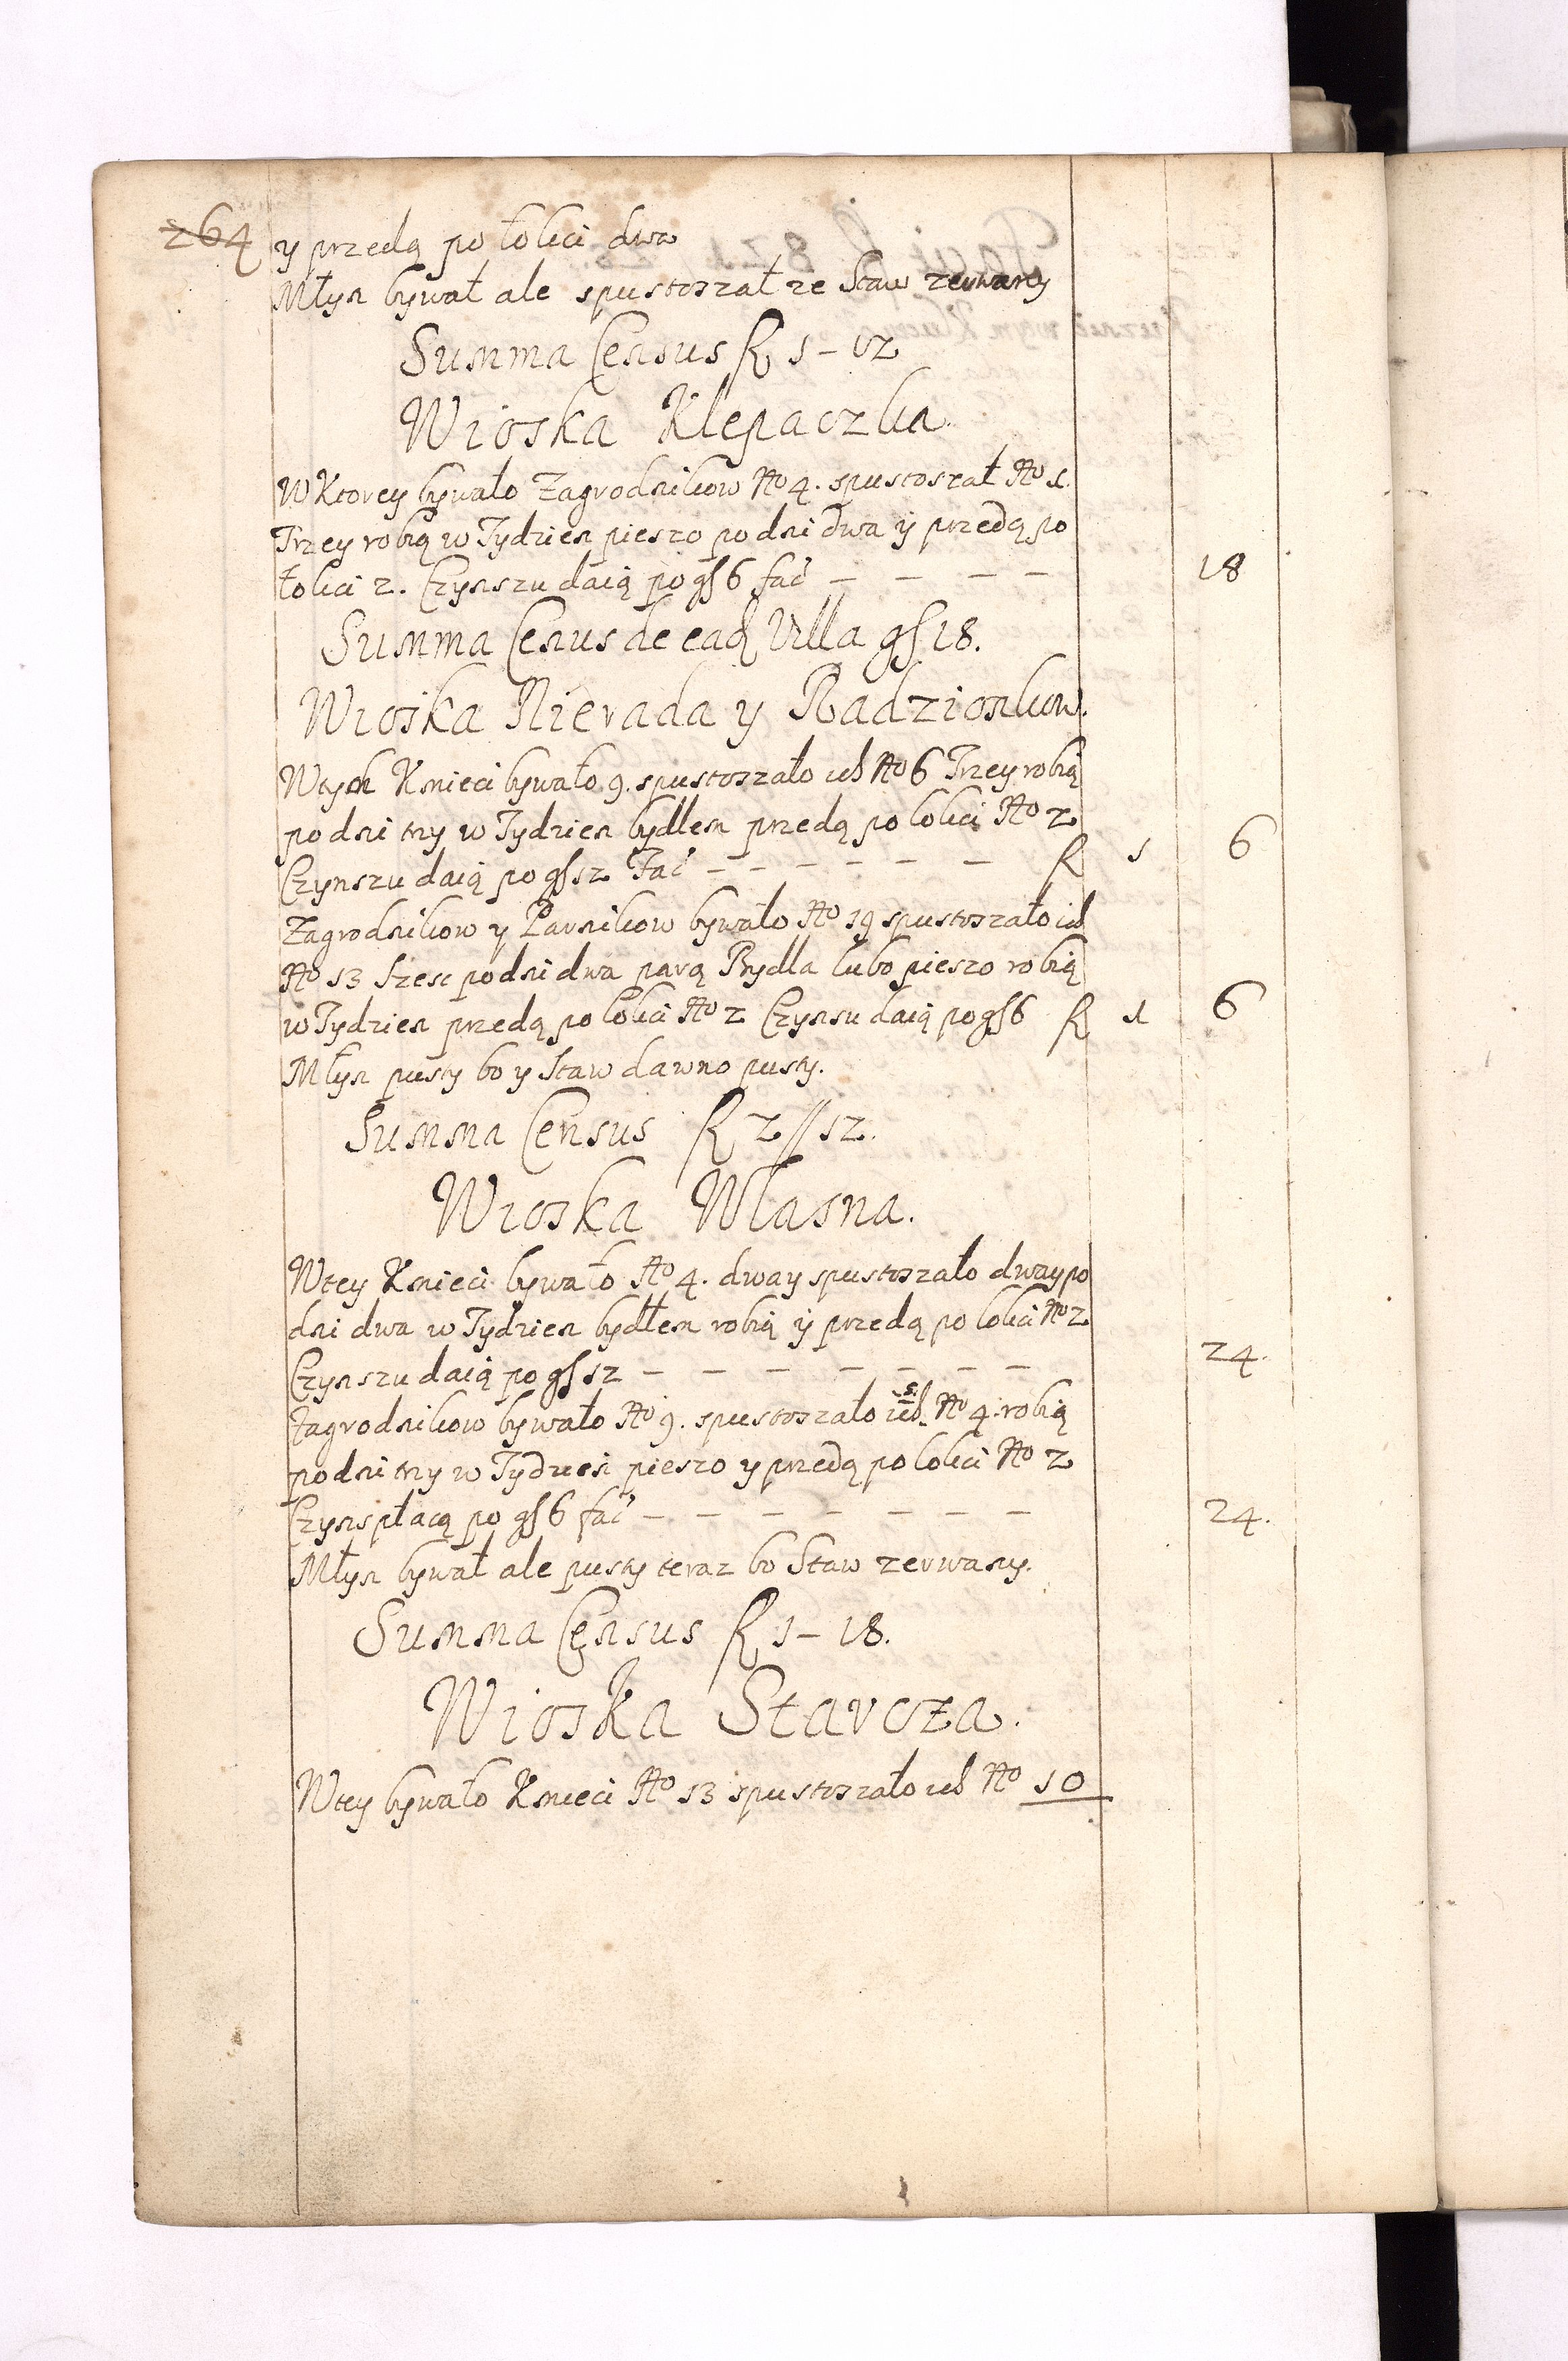 264
y przedą po łokci dwa
Młyn bywał ale spustoszał ze Staw zerwany
Summa Census R 1 – 12
Wioska Klepaczka.
W Ktorey bywało Zagrodnikow No 4. spustoszał No 1.
Trzey robią w Tydzien pieszo po dni dwa y przedą po
łokci 2. Czynszu daią po gſ 6 fac̃ – – – – 18
Summa Cenus de eadꝫ Villa gſ 18.
Wioska Nierada y Radzionkow.
W tych Kmieci bywało 9. spustoszało ich No 6 Trzey robią
po dni trzy w Tydzien bydłem przedą po łokci No 2
Czynszu daią po gſ 12 Fac̃ – – – – – – R 1 6
Zagrodnikow y Parnikow bywało No 19 spustoszało ich
No 13 szesc po dni dwa parą Bydła lubo pieszo robią
w Tydzien przedą po łokci No 2 Czynsu daią po gſ 6 R 1 6
Młyn pusty bo y Staw dawno pusty.
Summa Census R 2 // 12.
Wioska Własna.
W tey Kmieci bywało No 4. dway spustoszało dway po
dni dwa w Tydzien bydłem robią y przedą po łokci No 2
Czynszu daią po gſ 12 – – – – – – – 24.
Zagrodnikow bywało No 9. spustoszało ich 5. No 4. robią
po dni trzy w Tydzien pieszo y przedą po łokci No 2
Czynsz płacą po gſ 6 fac̃ – – – – – – – 24.
Młyn bywał ale pusty teraz bo Staw zerwany.
Summa Census R 1 – 18.
Wioska Starcza.
W tey bywało Kmieci No 13 spustoszało ich No 10